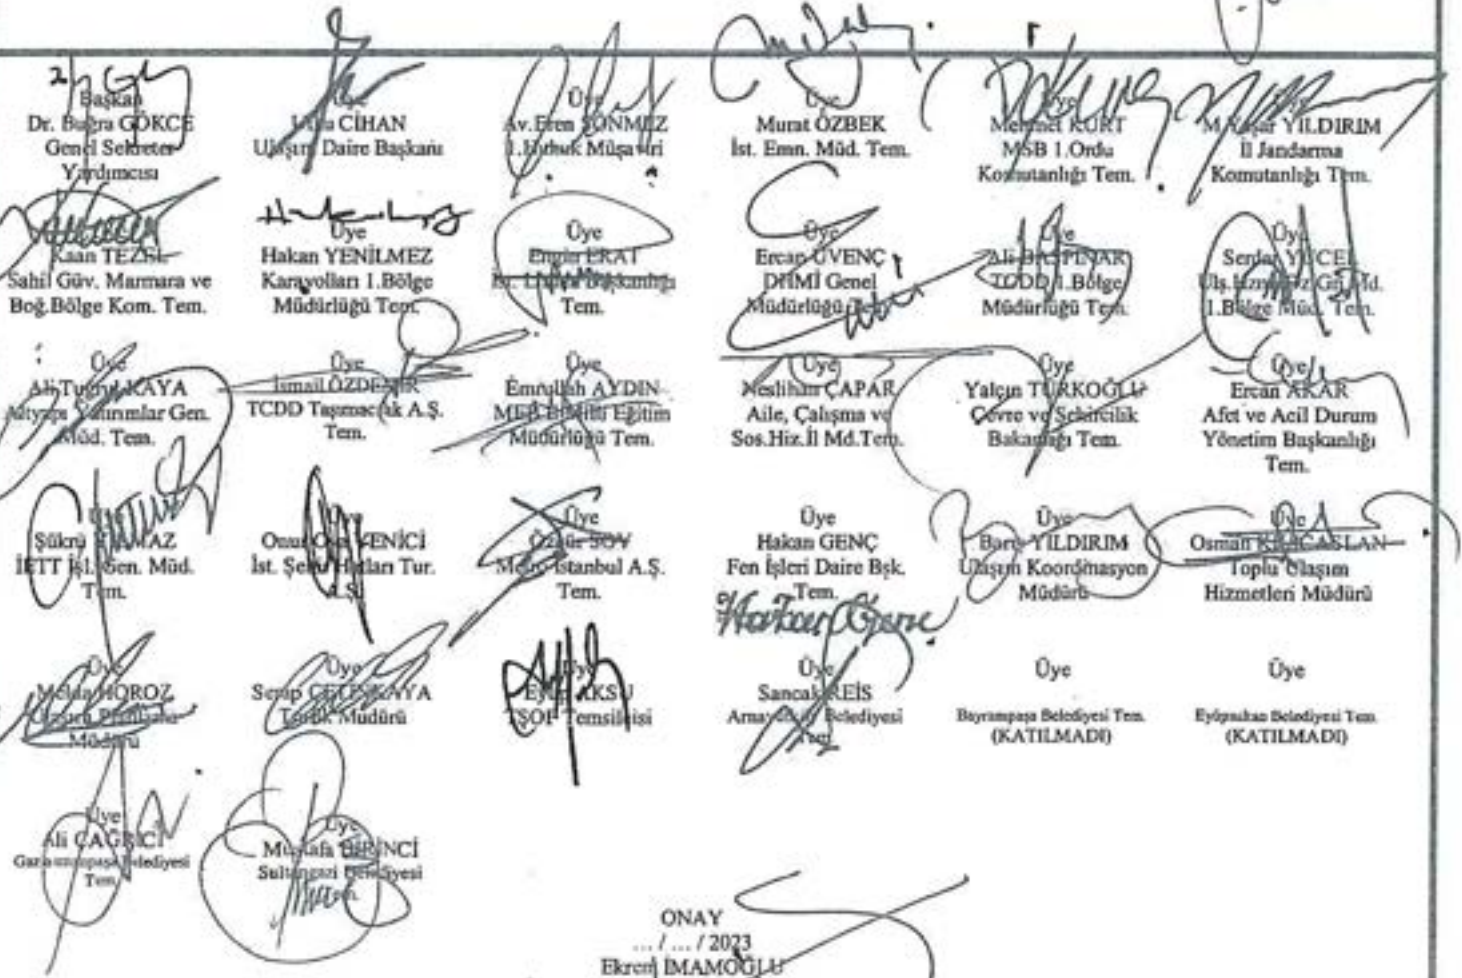 Başkan
Dr. Buğra GÖKCE
Genel Sekreter
Yardımcısı
Üye
CİHAN
Ulaşım Daire Başkanı
Üye
Av.Eren SÖNMEZ
1.Hukuk Müşaviri
Üye
Murat ÖZBEK
İst. Emn. Müd. Tem.
Üye
Mehmet KURT
MSB 1.Ordu
Komutanlığı Tem.
M.Yaşar YILDIRIM
İl Jandarma
Komutanlığı Tem.
Kaan
Sahil Güv. Marmara ve
Boğ.Bölge Kom. Tem.
Üye
Hakan YENİLMEZ
Karayolları 1.Bölge
Müdürlüğü Tem.
Üye
Engin ERAT
Başkanlığı
Tem.
Üye
Ercan ÜVENÇ
DHMİ Genel
Müdürlüğü Tem.
Üye
Ali BAŞPINAR
TCDD 1.Bölge
Müdürlüğü Tem.
Üye
Serdar YÜCEL
1.Bölge Müd. Tem.
Üye
Ali Tuğrul KAYA
Altyapı Yatırımlar Gen.
Müd. Tem.
Üye
İsmail ÖZDEMİR
TCDD Taşımacılık A.Ş.
Tem.
Üye
Emrullah AYDIN
MEB İl Milli Eğitim
Müdürlüğü Tem.
Üye
Neslihan ÇAPAR
Aile, Çalışma ve
Sos.Hiz.İl Md.Tem.
Üye
Yalçın TÜRKOĞLU
Çevre ve Şehircilik
Bakanlığı Tem.
Üye
Ercan AKAR
Afet ve Acil Durum
Yönetim Başkanlığı
Tem.
Üye
Şükrü
İETT İşl. Gen. Müd.
Tem.
Onur YENİCİ
İst. Şehir Hatları Tur.
A.Ş.
Üye
Özgür SOY
Metro İstanbul A.Ş.
Tem.
Üye
Hakan GENÇ
Fen İşleri Daire Bşk.
Tem.
Hakan Genc
Üye
Barış YILDIRIM
Ulaşım Koordinasyon
Müdürü
Üye
Osman
Toplu Ulaşım
Hizmetleri Müdürü
Üye
Melda HOROZ
Ulaşım Planlama
Müdürü
Üye
Serap ÇETİNKAYA
Trafik Müdürü
Üye
Eyüp AKSU
TŞOF Temsilcisi
Üye
Sancak REİS
Arnavutköy Belediyesi
Tem.
Üye
Bayrampaşa Belediyesi Tem.
(KATILMADI)
Üye
Eyüpsultan Belediyesi Tem.
(KATILMADI)
Üye
Ali ÇAĞRICI
Gaziosmanpaşa Belediyesi
Tem.
Üye
Mustafa BİRİNCİ
Sultangazi Belediyesi
ONAY
... / ... / 2023
Ekrem İMAMOĞLU